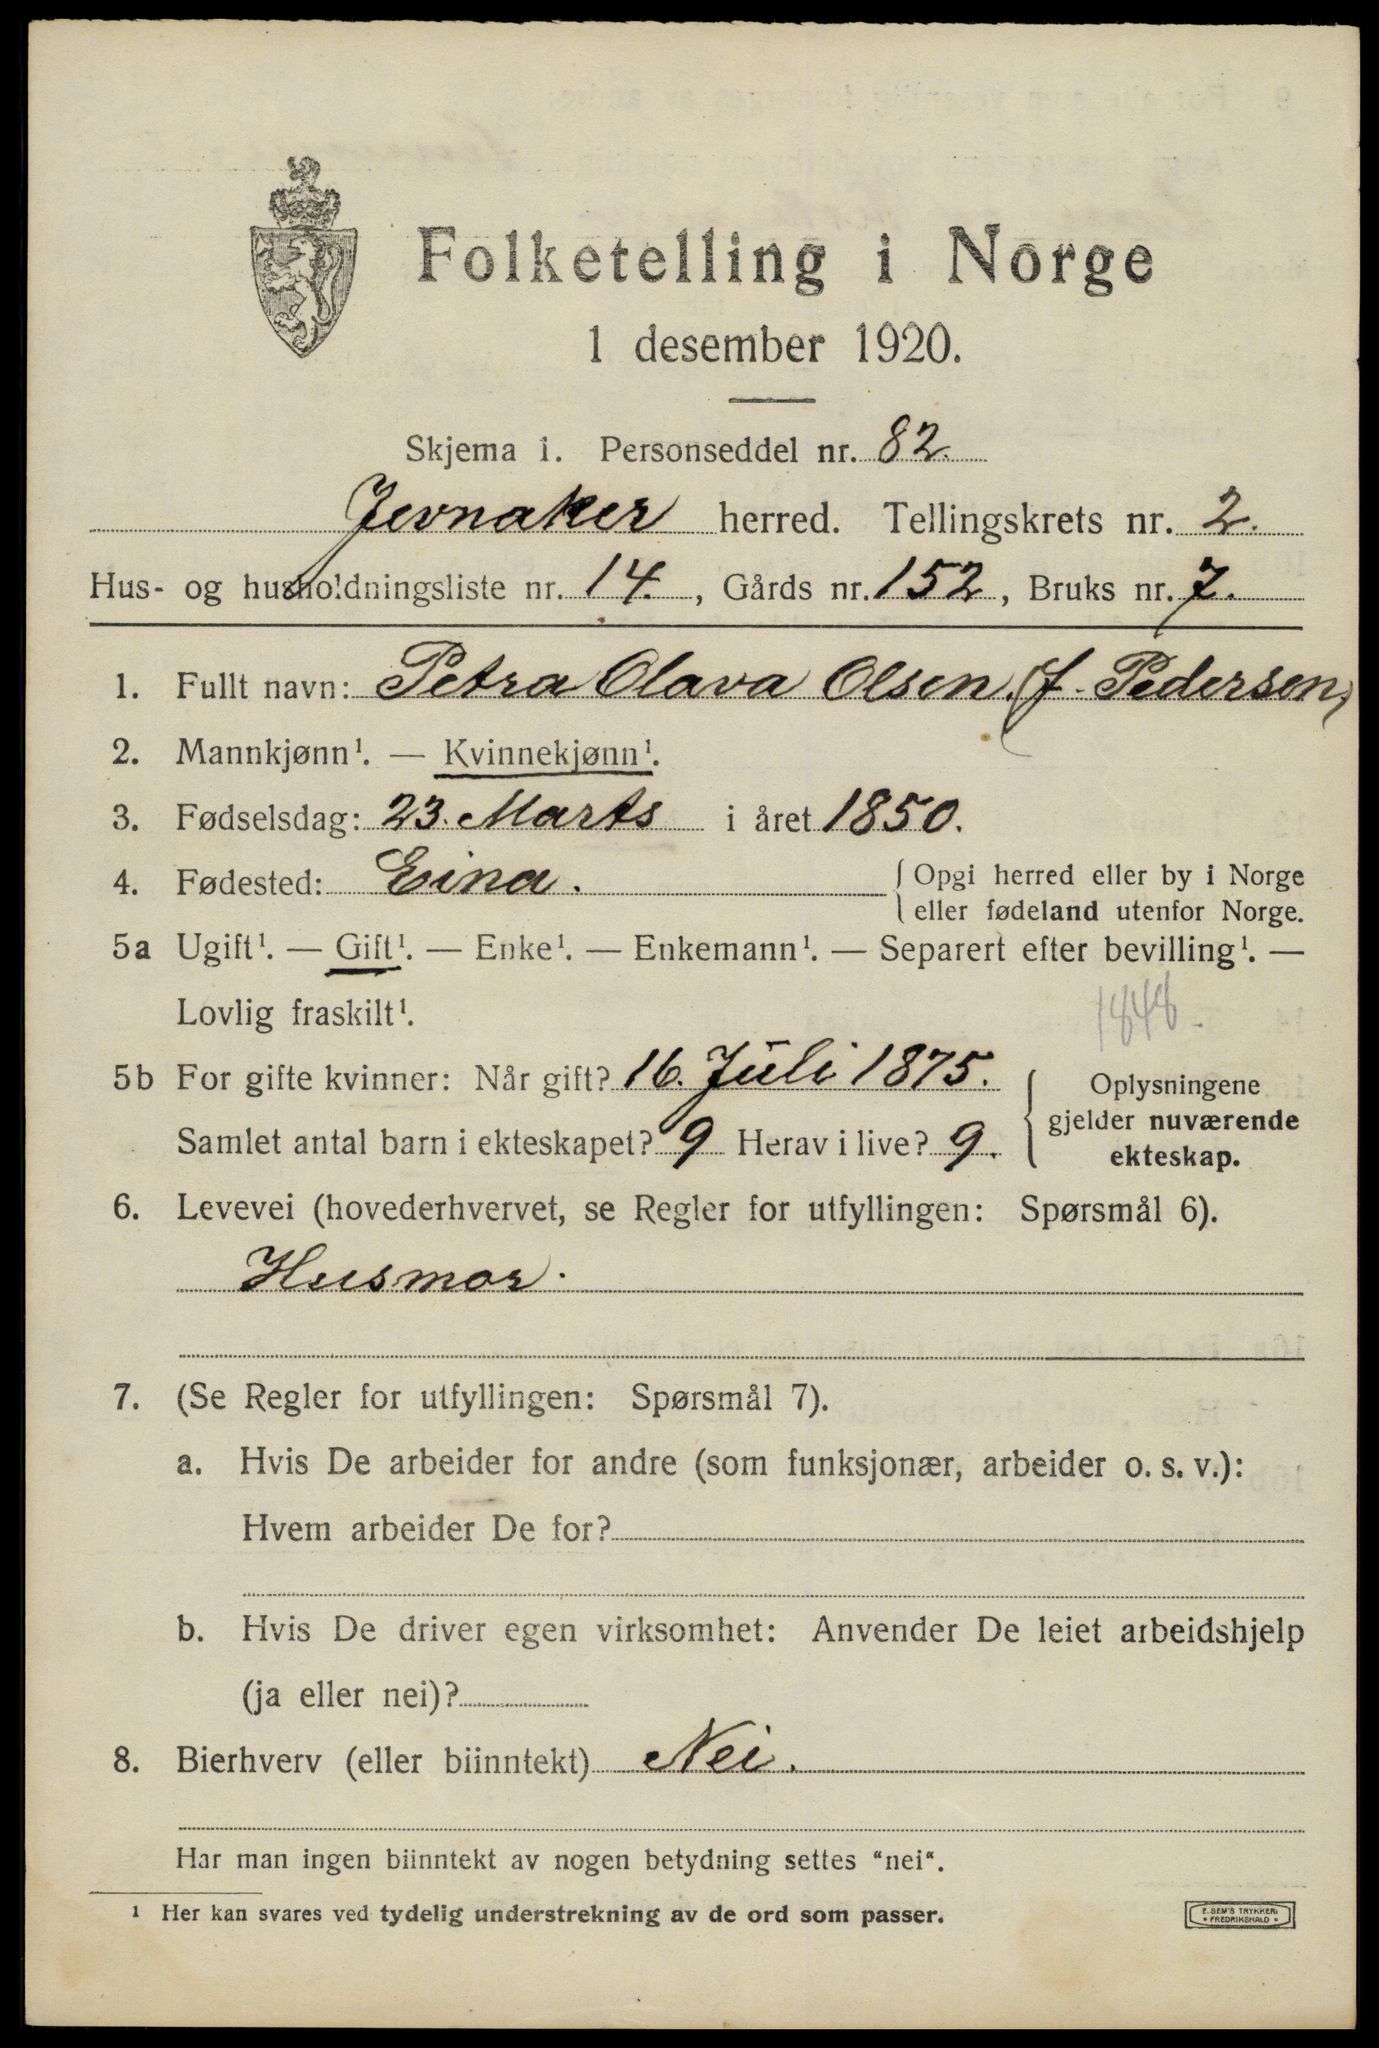 Folketelling i Norge
1 desember 1920.
Skjema 1. Personseddel nr. 82.
Jevnaker herred. Tellingskrets nr. 2.
Hus- og husholdningsliste nr. 14., Gårds nr. 152, Bruks nr. 7.
1. Fullt navn: Petra Olava Olsen. (f. Pedersen)
2. Mannkjønn¹. — Kvinnekjønn¹.
3. Fødselsdag: 23. Marts i året 1850.
4. Fødested: Eina. { Opgi herred eller by i Norge
eller fødeland utenfor Norge.
5a Ugift¹. — Gift¹. — Enke¹. — Enkemann¹. — Separert efter bevilling¹. —
Lovlig fraskilt¹.
1848.
5b For gifte kvinner: Når gift? 16. Juli 1875.
Samlet antal barn i ekteskapet? 9 Herav i live? 9.
{ Oplysningene
gjelder nuværende
ekteskap.
6. Levevei (hovederhvervet, se Regler for utfyllingen: Spørsmål 6).
Husmor.
7. (Se Regler for utfyllingen: Spørsmål 7).
a. Hvis De arbeider for andre (som funksjonær, arbeider o. s. v.):
Hvem arbeider De for?
b. Hvis De driver egen virksomhet: Anvender De leiet arbeidshjelp
(ja eller nei)?
8. Bierhverv (eller biinntekt) Nei.
Har man ingen biinntekt av nogen betydning settes "nei".
¹ Her kan svares ved tydelig understrekning av de ord som passer.
E. SEM'S TRYKKERI
* FREDRIKSHALD *